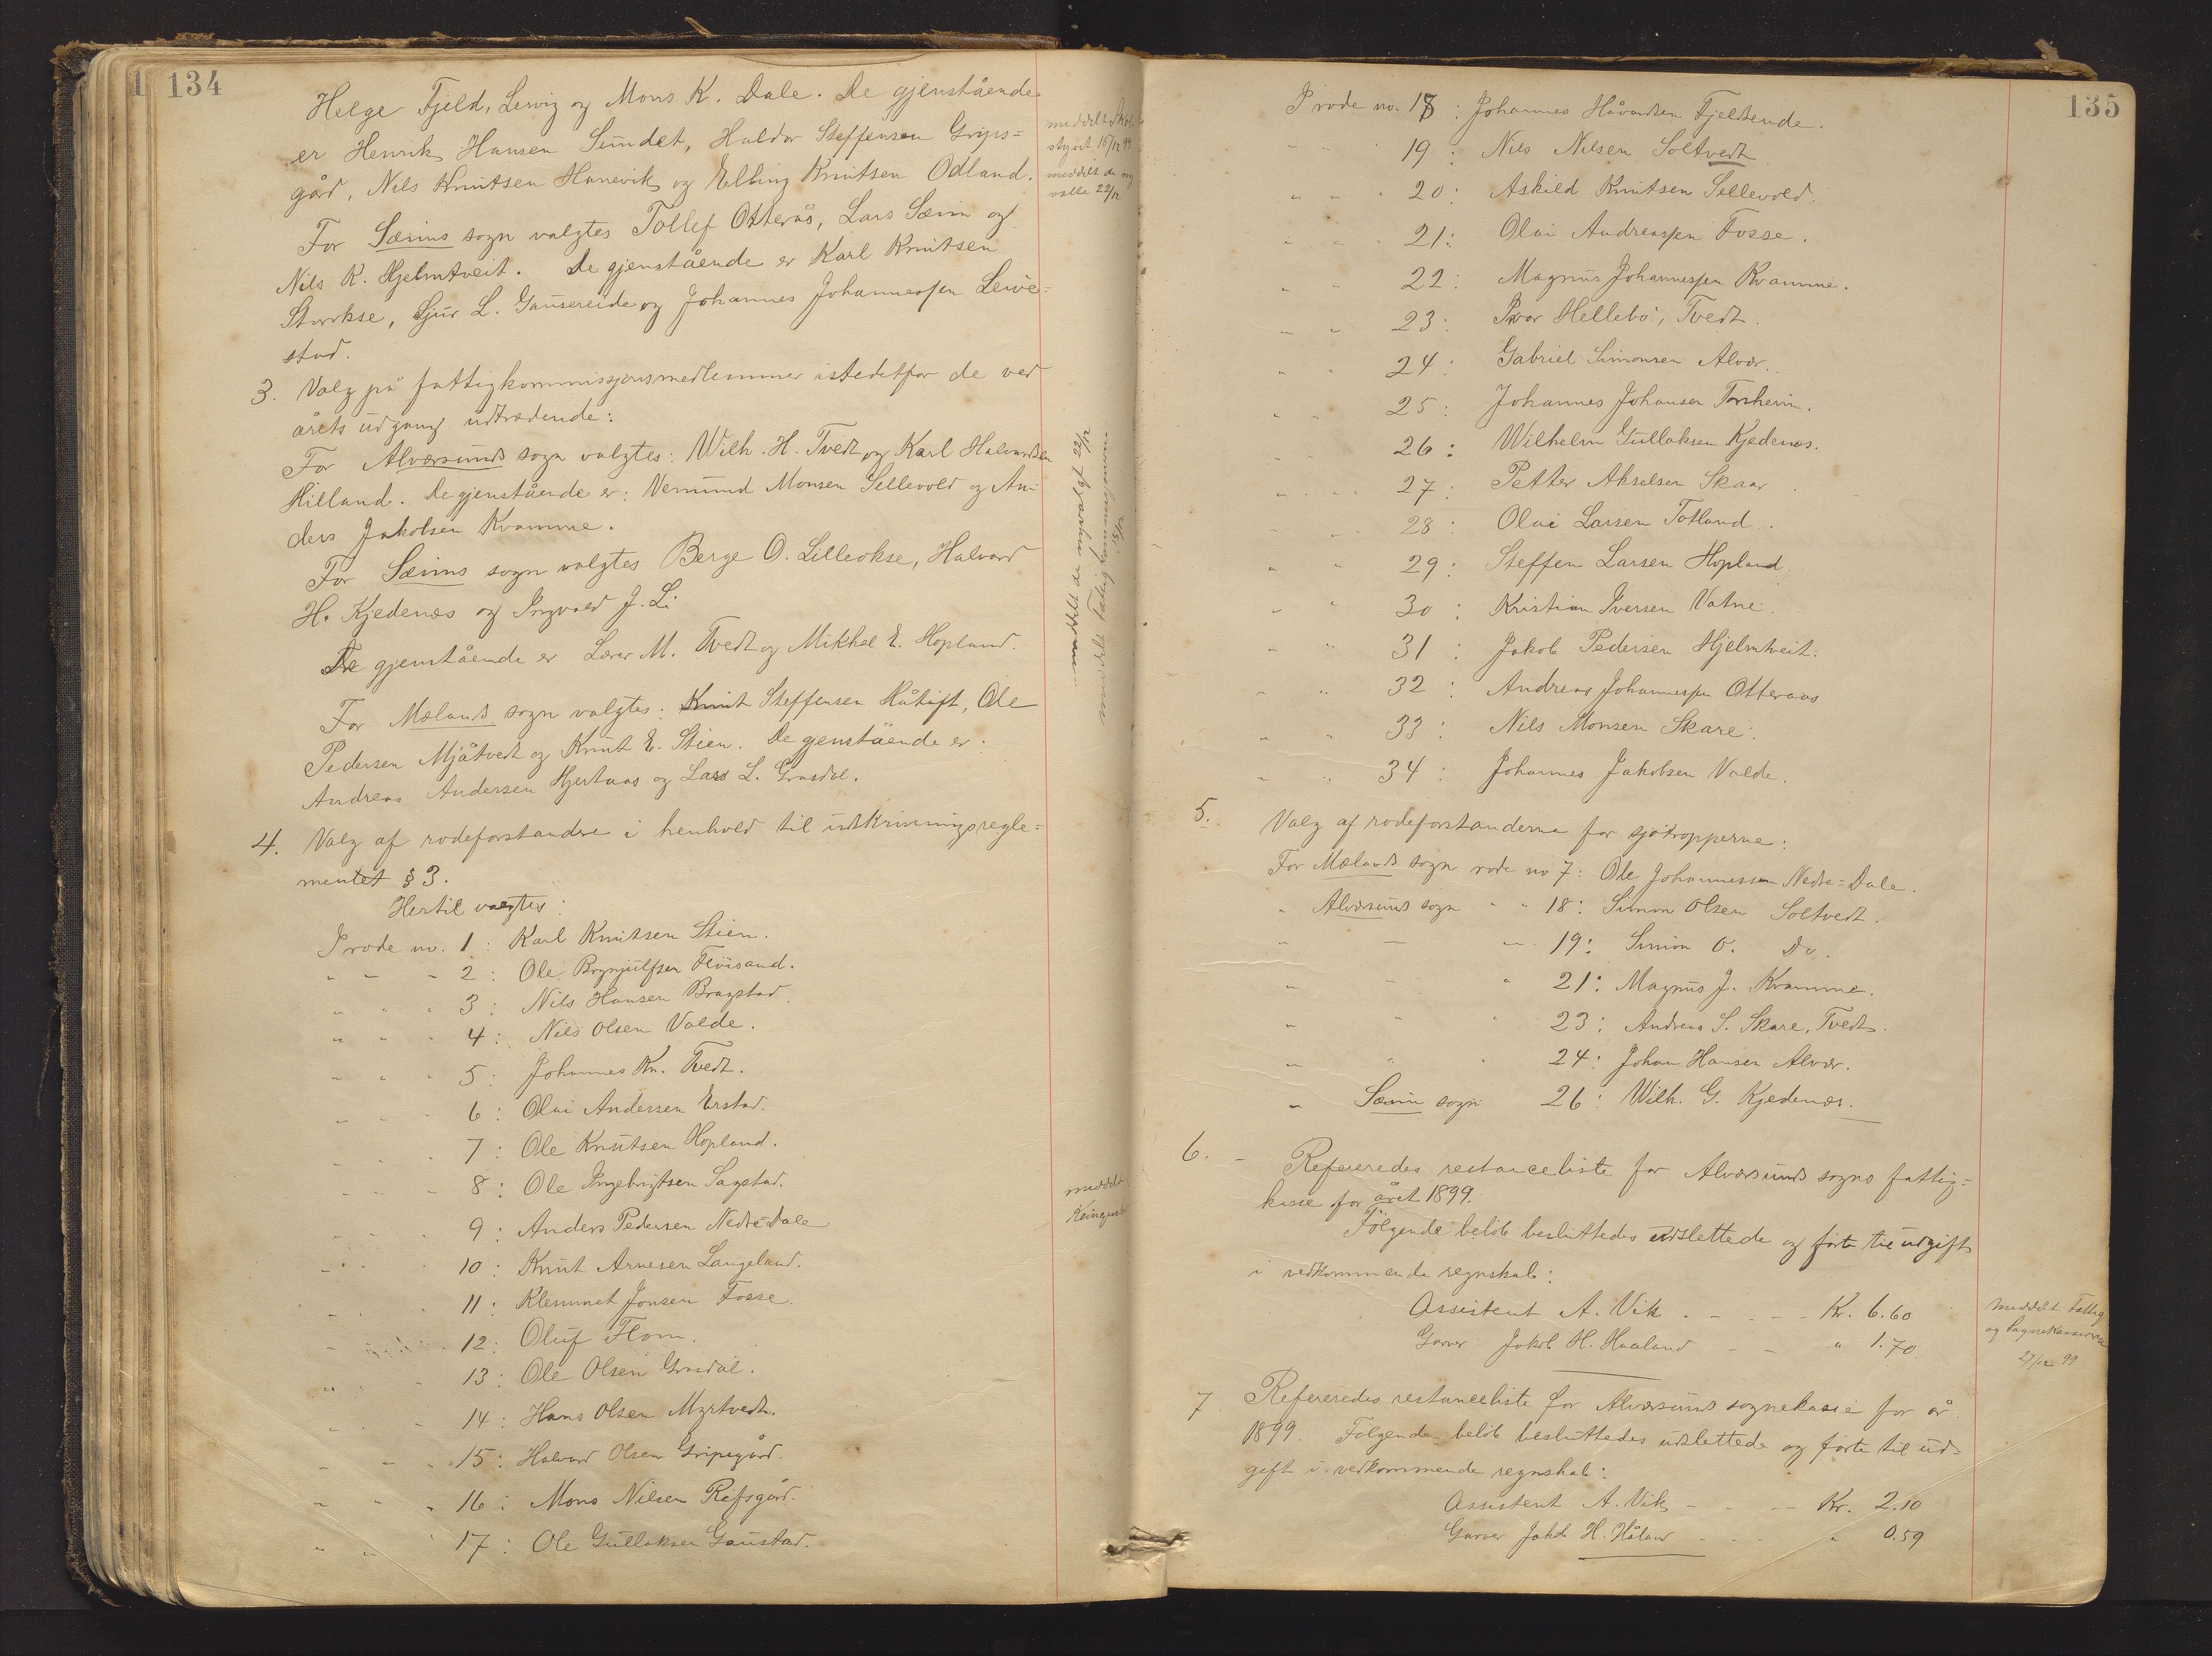 134
Helge Fjeld, Lervig og Mons K. Dale. De gjenstående
er Henrik Hansen Sundet, Haldor Steffensen Grips=
gård, Nils Knutsen Hanevik og Elling Knutsen Odland.
For Særims sogn valgtes Tollef Otterås, Lars Særim og
Nils K. Hjelmtveit. De gjenstående er Karl Knutsen
Storokse, Sjur L. Gausereide og Johannes Johannessen Leive=
stad.
3. Valg på fattigkommissjonsmedlemmer istedetfor de ved
årets udgang udtrædende:
For Alversunds sogn valgtes: Wilh. H. Tvedt og Karl Halvardsen
Hilland. De gjenstående er: Vemund Monsen Sellevold og An-
ders Jakobsen Kvamme.
For Særims sogn valgtes Berge O. Lilleokse, Halvard
H. Kjedenæs og Ingvald J. Li
De gjenstående er Lærer M. Tvedt og Mikkel E. Hopland.
For Mælands sogn valgtes: Knut Steffensen Håtuft, Ole
Pedersen Mjåtvedt og Knut E. Stien. De gjenstående er:
Andreas Andersen Hjertaas og Lars L. Grasdal.
4. Valg af rodeforstandere i henhold til udskrivningsregle=
mentet § 3.
Hertil valgtes:
I rode no. 1: Karl Knutsen Stien.
" " " 2: Ole Brynjulfsen Fløisand.
" " " 3: Nils Hansen Bragstad.
" " " 4: Nils Olsen Valde.
" " " 5: Johannes Kn. Tvedt.
" " " 6: Olai Andersen Erstad.
" " " 7: Ole Knutsen Hopland.
" " " 8: Ole Ingebrigtsen Sagstad.
" " " 9: Anders Pedersen Nedre=Dale
" " " 10: Knut Arnesen Langeland.
" " " 11: Klemmet Jonsen Fosse.
" " " 12: Oluf Flom.
" " " 13: Ole Olsen Grasdal.
" " " 14: Hans Olsen Myrtvedt.
" " " 15: Halvard Olsen Gripsgård.
" " " 16: Mons Nilsen Refsgård.
" " " 17: Ole Gullaksen Gaustad.
meddelt Skole
styret 15/12 99
meddelt de ny
valte 22/12
meddelt de nyvalgt 22/12
meddelt Fattigkommisjonerne
15/12
meddelt
135
I rode no. 18: Johannes Håvardsen Fjeldsende.
" " " 19: Nils Nilsen Soltvedt
" " " 20: Askild Knutsen Sellevold.
" " " 21: Olai Andreassen Fosse.
" " 22: Magnus Johannessen Kvamme.
" " 23: Ivar Hellebö, Tvedt.
" " 24: Gabriel Simonsen Alvær.
" " 25: Johannes Johansen Torsheim.
" " 26: Wilhelm Gullaksen Kjedenæs.
" " " 27: Petter Akselsen Skaar.
" " 28: Olai Larsen Totland.
" " 29: Steffen Larsen Hopland
" " 30: Kristian Iversen Vatne.
" " 31: Jakob Pedersen Hjelmtveit.
" " 32: Andreas Johannessen Otteraas
" " 33: Nils Monsen Skare.
" " 34: Johannes Jakobsen Valde.
5. Valg af rodeforstanderne for sjøtropperne:
For Mælands sogn rode no 7: Ole Johannessen Nedre=Dale.
" Alversunds sogn " " 18: Simon Olsen Soltvedt.
" — " 19: Simon O. Do.
" " " 21: Magnus J. Kvamme.
" " " 23: Andreas S. Skare, Tvedt.
" " " 24: Johan Hansen Alvær.
" Særim sogn 26: Wilh. G. Kjedenæs.
6. - Refereredes restanceliste for Alversunds sogns fattig=
kasse for året 1899.
Følgende beløb besluttedes udslettede og førte til udgift
i vedkommende regnskab:
Assistent A. Vik - - - - Kr. 6.60
Garver Jakob H. Haaland - - " 1.70
7. Refereredes restanceliste for Alversunds sognekasse for år
1899. Følgende beløb besluttedes udslettede og førte til ud=
gift i vedkommende regnskab:
Assistent A. Vik - - - - Kr. 2.10
Garver Jakob H. Håland - - - " 0.59
meddelt Fattig
og Sognekasserer
27/12 99